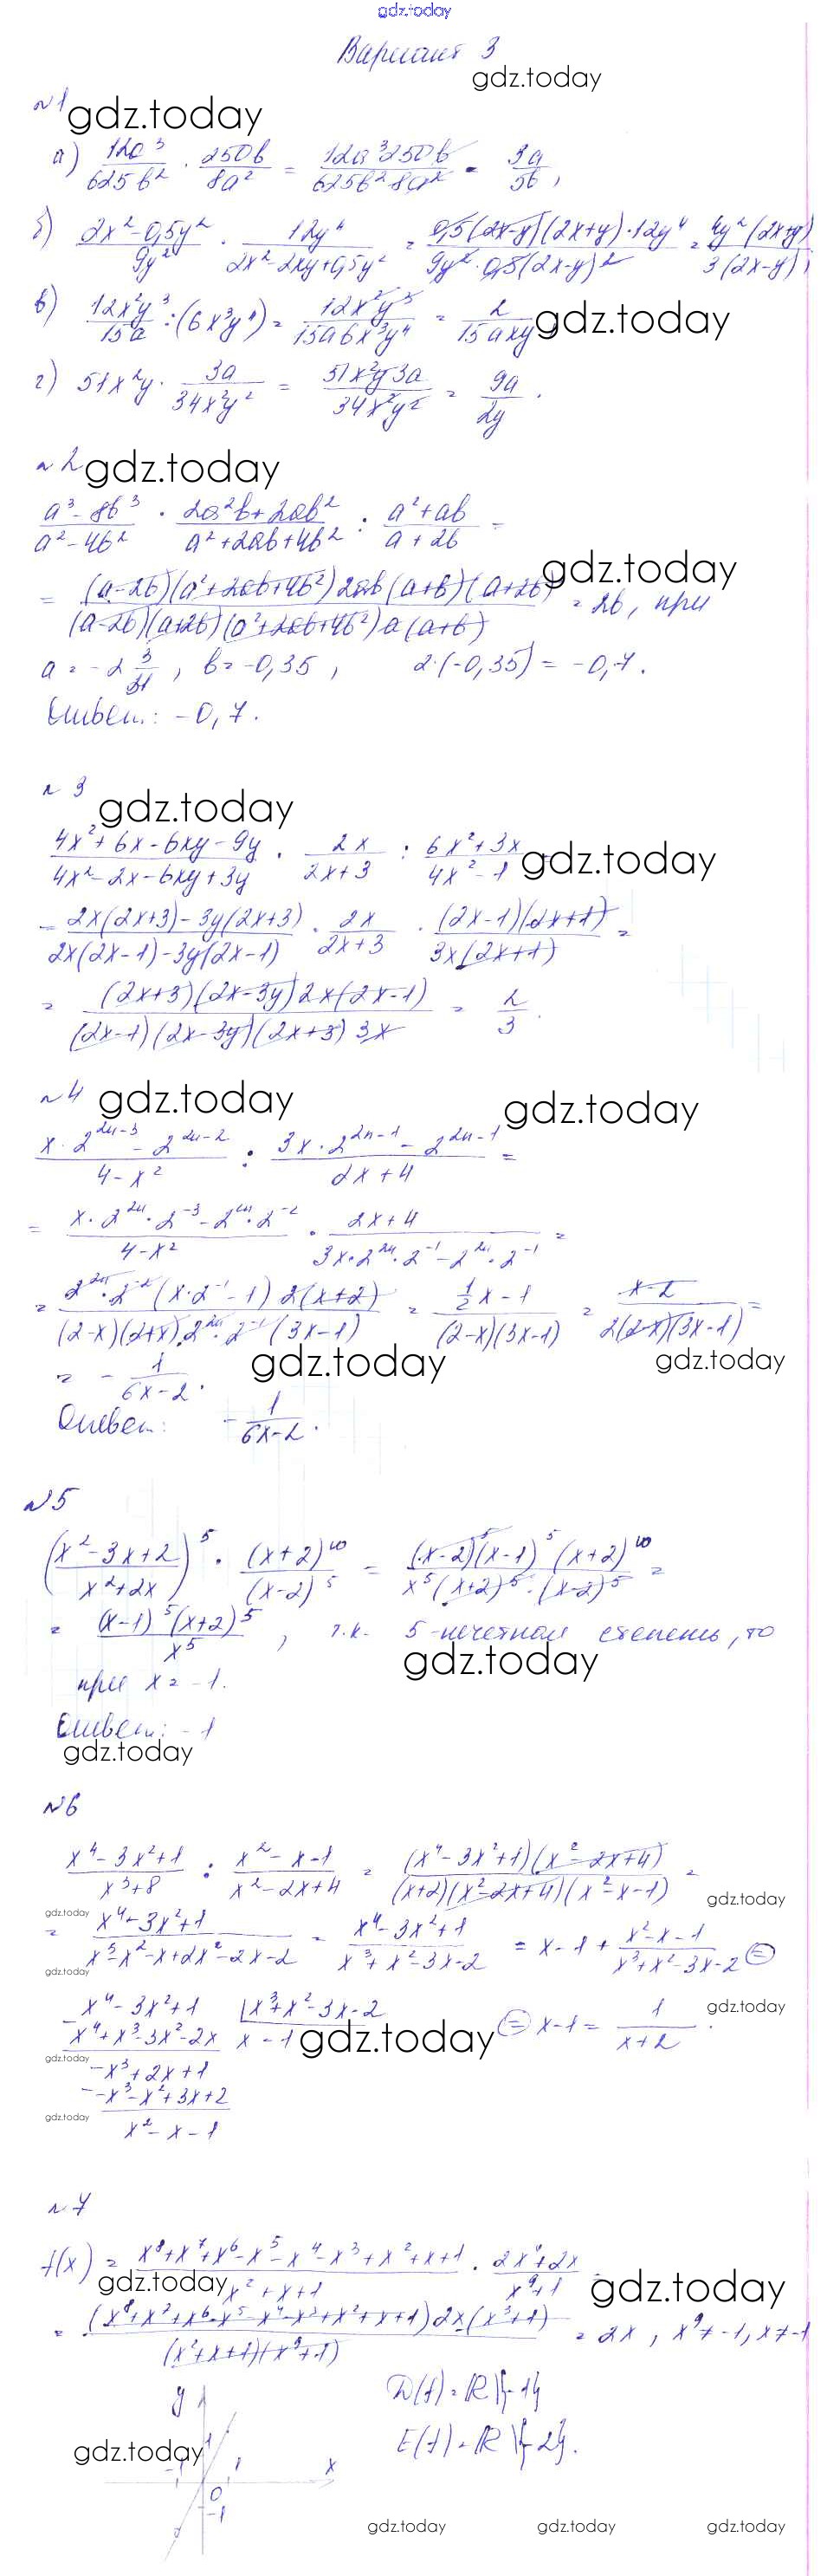 gdz.today
Вариант 3
gdz.today
№1 gdz.today
а) 12a³/625b² · 250b/8a² = 12a³250b/625b²8a² = 3a/5b,
б) 2x²-0,5y²/9y² · 12y⁴/2x²-2xy+0,5y² = 0,5(2x-y)(2x+y)·12y⁴/9y²·0,5(2x-y)² = 4y²(2x+y)/3(2x-y),
в) 12x²y³/15a : (6x³y⁴) = 12x²y³/15a6x³y⁴ = 2/15axy gdz.today
г) 51x²y · 3a/34x²y² = 51x²y3a/34x²y² = 9a/2y.
№2 gdz.today
a³-8b³/a²-4b² · 2a²b+2ab²/a²+2ab+4b² : a²+ab/a+2b =
gdz.today
= (a-2b)(a²+2ab+4b²)2ab(a+b)(a+2b)/(a-2b)(a+2b)(a²+2ab+4b²)a(a+b) = 2b, при
a = -2 3/31, b = -0,35, 2·(-0,35) = -0,7.
Ответ: -0,7.
№3
gdz.today
4x²+6x-6xy-9y/4x²-2x-6xy+3y · 2x/2x+3 : 6x²+3x/4x²-1 = gdz.today
= 2x(2x+3)-3y(2x+3)/2x(2x-1)-3y(2x-1) · 2x/2x+3 · (2x-1)(2x+1)/3x(2x+1) =
= (2x+3)(2x-3y)2x(2x-1)/(2x-1)(2x-3y)(2x+3)3x = 2/3.
№4 gdz.today gdz.today
x·2²ⁿ⁻³-2²ⁿ⁻²/4-x² : 3x·2²ⁿ⁻¹-2²ⁿ⁻¹/2x+4 =
= x·2²ⁿ·2⁻³-2²ⁿ·2⁻²/4-x² · 2x+4/3x·2²ⁿ·2⁻¹-2²ⁿ·2⁻¹ =
= 2²ⁿ·2⁻²(x·2⁻¹-1)2(x+2)/(2-x)(2+x)·2²ⁿ·2⁻¹(3x-1) = ½x-1/(2-x)(3x-1) = x-2/2(2-x)(3x-1) =
= -1/6x-2. gdz.today gdz.today
Ответ: -1/6x-2.
№5
(x²-3x+2/x²+2x)⁵ · (x+2)¹⁰/(x-2)⁵ = (x-2)⁵(x-1)⁵(x+2)¹⁰/x⁵(x+2)⁵·(x-2)⁵ =
= (x-1)⁵(x+2)⁵/x⁵, т.к. 5-нечетной степень, то
gdz.today
при x = -1.
Ответ: -1
gdz.today
№6
x⁴-3x²+1/x³+8 : x²-x-1/x²-2x+4 = (x⁴-3x²+1)(x²-2x+4)/(x+2)(x²-2x+4)(x²-x-1) =
gdz.today
gdz.today
= x⁴-3x²+1/x³-x²-x+2x²-2x-2 = x⁴-3x²+1/x³+x²-3x-2 = x-1+x²-x-1/x³+x²-3x-2 =
gdz.today
x⁴-3x²+1 |x³+x²-3x-2 = x-1 = 1/x+2. gdz.today
x⁴+x³-3x²-2x x-1 gdz.today
gdz.today
-x³+2x+1
-x³-x²+3x+2
gdz.today
x²-x-1
№7
f(x) = x⁸+x⁷+x⁶-x⁵-x⁴-x³+x²+x+1/x²+x+1 · 2x⁴+2x/x⁹+1
gdz.today gdz.today
= (x⁸+x⁷+x⁶-x⁵-x⁴-x³+x²+x+1)2x(x³+1)/(x²+x+1)(x⁹+1) = 2x, x⁹≠-1, x≠-1
D(f) = R\{-1}
y
E(f) = R\{-2}.
gdz.today
1
-1 1 x
0
-1
gdz.today gdz.today gdz.today